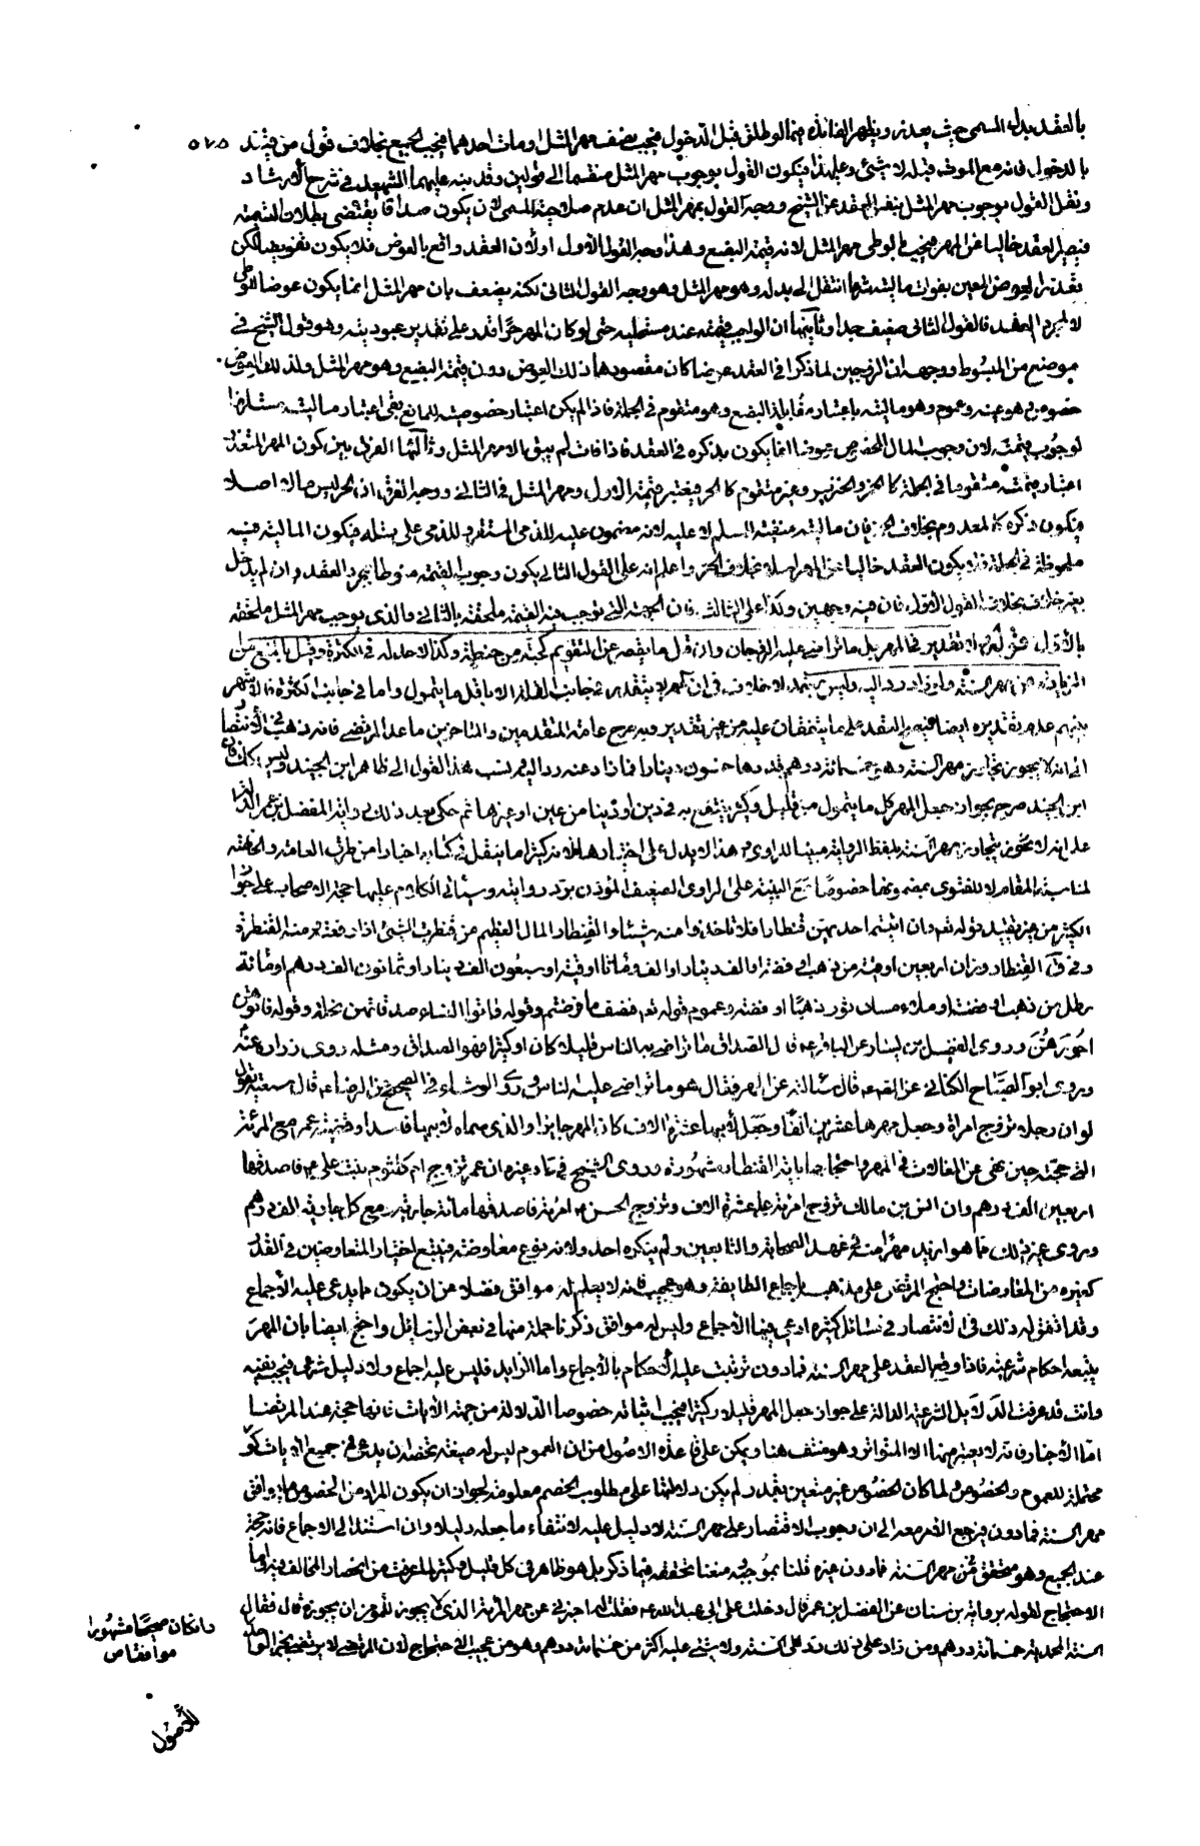 بالعقد بدل المسمى حيث يعذر ويظهر الفائدة فيما لو طلق قبل الدخول فيجب نصف مهر المثل او مات احدهما فيجب الجميع بخلاف قول من قيده ٥٧٥
بالدخول فانه مع الموت قبله لا شئ وعلى هذا فيكون القول بوجوب مهر المثل منقسما الى قولين وقد نبه عليهما الشهيد في شرح الارشاد
ونقل القول بوجوب مهر المثل بنفس العقد عن الشيخ ووجه القول بمهر المثل ان عدم صلاحية المسمى لان يكون صداقا يقتضى بطلان التسمية
فيصير العقد خاليا عن المهر فيجب بالوطى مهر المثل لانه قيمة البضع وهذا وجه القول الاول او لان العقد واقع بالعوض فلا يكون تفويضا لكن
تعذر العوض المعين بفوات ماليته شرعا انتقل الى بدله وهو مهر المثل وهو وجه القول الثانى لكنه يضعف بان مهر المثل انما يكون عوضا للوطى
لا لمجرد العقد فالقول الثانى ضعيف جدا وثانيها ان الواجب قيمته عند مستحليه حتى لو كان المهر حرا قدر على تقدير عبوديته وهو قول الشيخ في
موضع من المبسوط ووجهه ان الزوجين لما ذكرا في العقد عوضا كان مقصودهما ذلك العوض دون قيمة البضع وهو مهر المثل ولذلك العوض
خصوص هو عينه وعموم وهو ماليته باعتباره مقابلة البضع وهو متقوم في الجملة فاذا لم يكن اعتبار خصوصيته للمانع بقى اعتبار ماليته مستلزما
لوجوب قيمته لان وجوب المال المخصوص عوضا انما يكون بذكره في العقد فاذا فات لم يبق الا مهر المثل وثالثها الفرق بين كون المهر المتعذر
اعتبار قيمته متقوما في الجملة كالخمر والخنزير وغير متقوم كالحر فيعتبر قيمة الاول ومهر المثل في الثانى ووجه الفرق ان الحر ليس مالا اصلا
فيكون ذكره كالمعدوم بخلاف الخمر فان ماليته منفية للمسلم لا عليه لانه مضمون عليه للذمى المستتر وللذمى على مثله فيكون المالية فيه
ملحوظة في الجملة فلا يكون العقد خاليا عن المهر اصلا بخلاف الحر واعلم انه على القول الثانى يكون وجوب القيمة منوطا بمجرد العقد وان لم يدخل
بغير خلاف بخلاف القول الاول فان فيه وجهين وكذا على الثالث فان الجهة التى توجب فيه القيمة ملحقة بالثانى والذى يوجب مهر المثل ملحقة
بالاول قوله ولا تقدير في المهر بل ما تراضى عليه الزوجان وان قل ما لم يقصر عن التقويم كحبة من حنطة وكذا لا حد له في الكثرة وقيل بالمنع من
الزيادة عن مهر السنة ولو زاد رد اليه وليس بمعتمد لا خلاف في ان المهر لا يتقدر في جانب القلة الا باقل ما يتمول واما في جانب الكثرة فالاشهر
بينهم عدم تقديره ايضا فيصح العقد على ما يتفقان عليه من غير تقدير وبه صرح عامة المتقدمين والمتاخرين ما عدا المرتضى فانه ذهب في الانتصار
الى انه لا يجوز تجاوز مهر السنة وهو خمسمائة درهم قدرها خمسون دينارا فما زاد عنه رد اليه وربما نسب هذا القول الى ظاهر ابن الجنيد وليس كذلك فان
ابن الجنيد صرح بجواز جعل المهر كل ما يتمول من قليل وكثير ينتفع به في دين او دنيا من عين او غيرها ثم حكى بعد ذلك رواية المفضل بن عمر الدالة
على انه لا يجوز تجاوز مهر السنة بلفظ الرواية مبينا للراوى وهذا لا يدل على اختيارها لانه كثيرا ما ينقل في كتابه اخبارا من طرق العامة والخاصة
لمناسبة المقام لا للفتوى بمضمونها خصوصا مع التنبيه على الراوى الضعيف المؤذن برد روايته وسيأتى الكلام عليها حجة الاصحاب على جواز
الكثير من غير تقييد قوله تعه وان اتيتم احديهن قنطارا فلا تاخذوا منه شيئا والقنطار المال العظيم من قنطرت الشئ اذا رفعته ومنه القنطرة
وفي ق القنطار وزان اربعين اوقية من ذهب او فضة او الف دينار او الف ومائتا اوقية او سبعون الف دينار او ثمانون الف درهم او مائة
رطل من ذهب او فضة او ملاء مسك ثور ذهبا او فضة وعموم قوله تعه فنصف ما فرضتم وقوله واتوا النساء صدقاتهن نحلة وقوله فاتوهن
اجورهن وروى الفضيل بن يسار عن الباقر ع قال الصداق ما تراضى به الناس قليلا كان او كثيرا فهو الصداق ومثله روى زرارة عنه
وروى ابو الصباح الكنانى عن الص ع قال سئالته عن المهر فقال هو ما تراضى عليه الناس وروى الوشاء في الصحيح عن الرضا ع قال سمعته يقول
لو ان رجلا تزوج امراة وجعل مهرها عشرين الفا وجعل لابيها عشرة الاف كان المهر جايزا والذى سماه لابيها فاسدا وقضية عمر مع المرئة
التى حجته حين نهى عن المغالاة في المهر واحتجاجها باية القنطار مشهورة وروى الشيخ في ط وغيره ان عمر تزوج ام كلثوم بنت على ع فاصدقها
اربعين الف درهم وان انس بن مالك تزوج امراة على عشرة الاف وتزوج الحسن ع امراة فاصدقها مائة جارية مع كل جارية الف درهم
وروى غير ذلك مما هو ازيد مهرا منه في عهد الصحابة والتابعين ولم ينكره احد ولانه نوع معاوضة فيتبع اختيار المتعاوضين في القدر
كغيره من المعاوضات واحتج المرتضى على مذهبه باجماع الطايفة وهو عجيب فانه لا يعلم له موافق فضلا من ان يكون مما يدعى عليه الاجماع
وقد اتفق له ذلك في الانتصار في مسائل كثيرة ادعى فيها الاجماع وليس له موافق ذكرنا جملة منها في بعض الرسائل واحتج ايضا بان المهر
يتبعه احكام شرعية فاذا وقع العقد على مهر السنة فما دون ترتبت عليه الاحكام بالاجماع واما الزايد فليس عليه اجماع ولا دليل شرعى فيجب نفيه
وانت قد عرفت الدلايل الشرعية الدالة على جواز جعل المهر قليلا وكثيرا فيجب اثباته خصوصا الدلالة من جهة الايات فانها حجة عند المرتضى
اما الاخبار فانه لا يعتبر منها الا المتواتر وهو منتف هنا ويمكن على قاعدته الاصولية من ان العموم ليس له صيغة تخصه ان يدعى في جميع الايات كونها
محتملة للعموم والخصوص ولما كان الخصوص غير متعين بقدر لم يكن دلالتها على مطلوب الخصم معلومة لجواز ان يكون المراد من الخصوص ما يوافق
مهر السنة فما دون فيرجع الامر معه الى ان وجوب الاقتصار على مهر السنة لا دليل عليه لانتفاء ما جعله دليلا وان استند الى الاجماع فانه حجة
عند الجميع وهو متحقق في مهر السنة فما دون غيره قلنا بموجبه ومنعنا تحققه فيما ذكر بل هو ظاهر في كل قليل وكثير لما عرفت من انحصار المخالف فيه واما
الاحتجاج لقوله برواية بن سنان عن المفضل بن عمر قال دخلت على ابى عبد الله ع فقلت له اخبرنى عن مهر المرأة الذى لا يجوز للمؤمن ان يجوزه قال فقال
السنة المحمدية خمسمائة درهم ومن زاد على ذلك رد الى السنة ولا شئ عليه اكثر من خمسمائة درهم وهو من عجيب الاحتجاج لان المرتضى لا يرتضى بخبر الواحد
وان كان صحيحا مشهورا
موافقا ص
للاصول